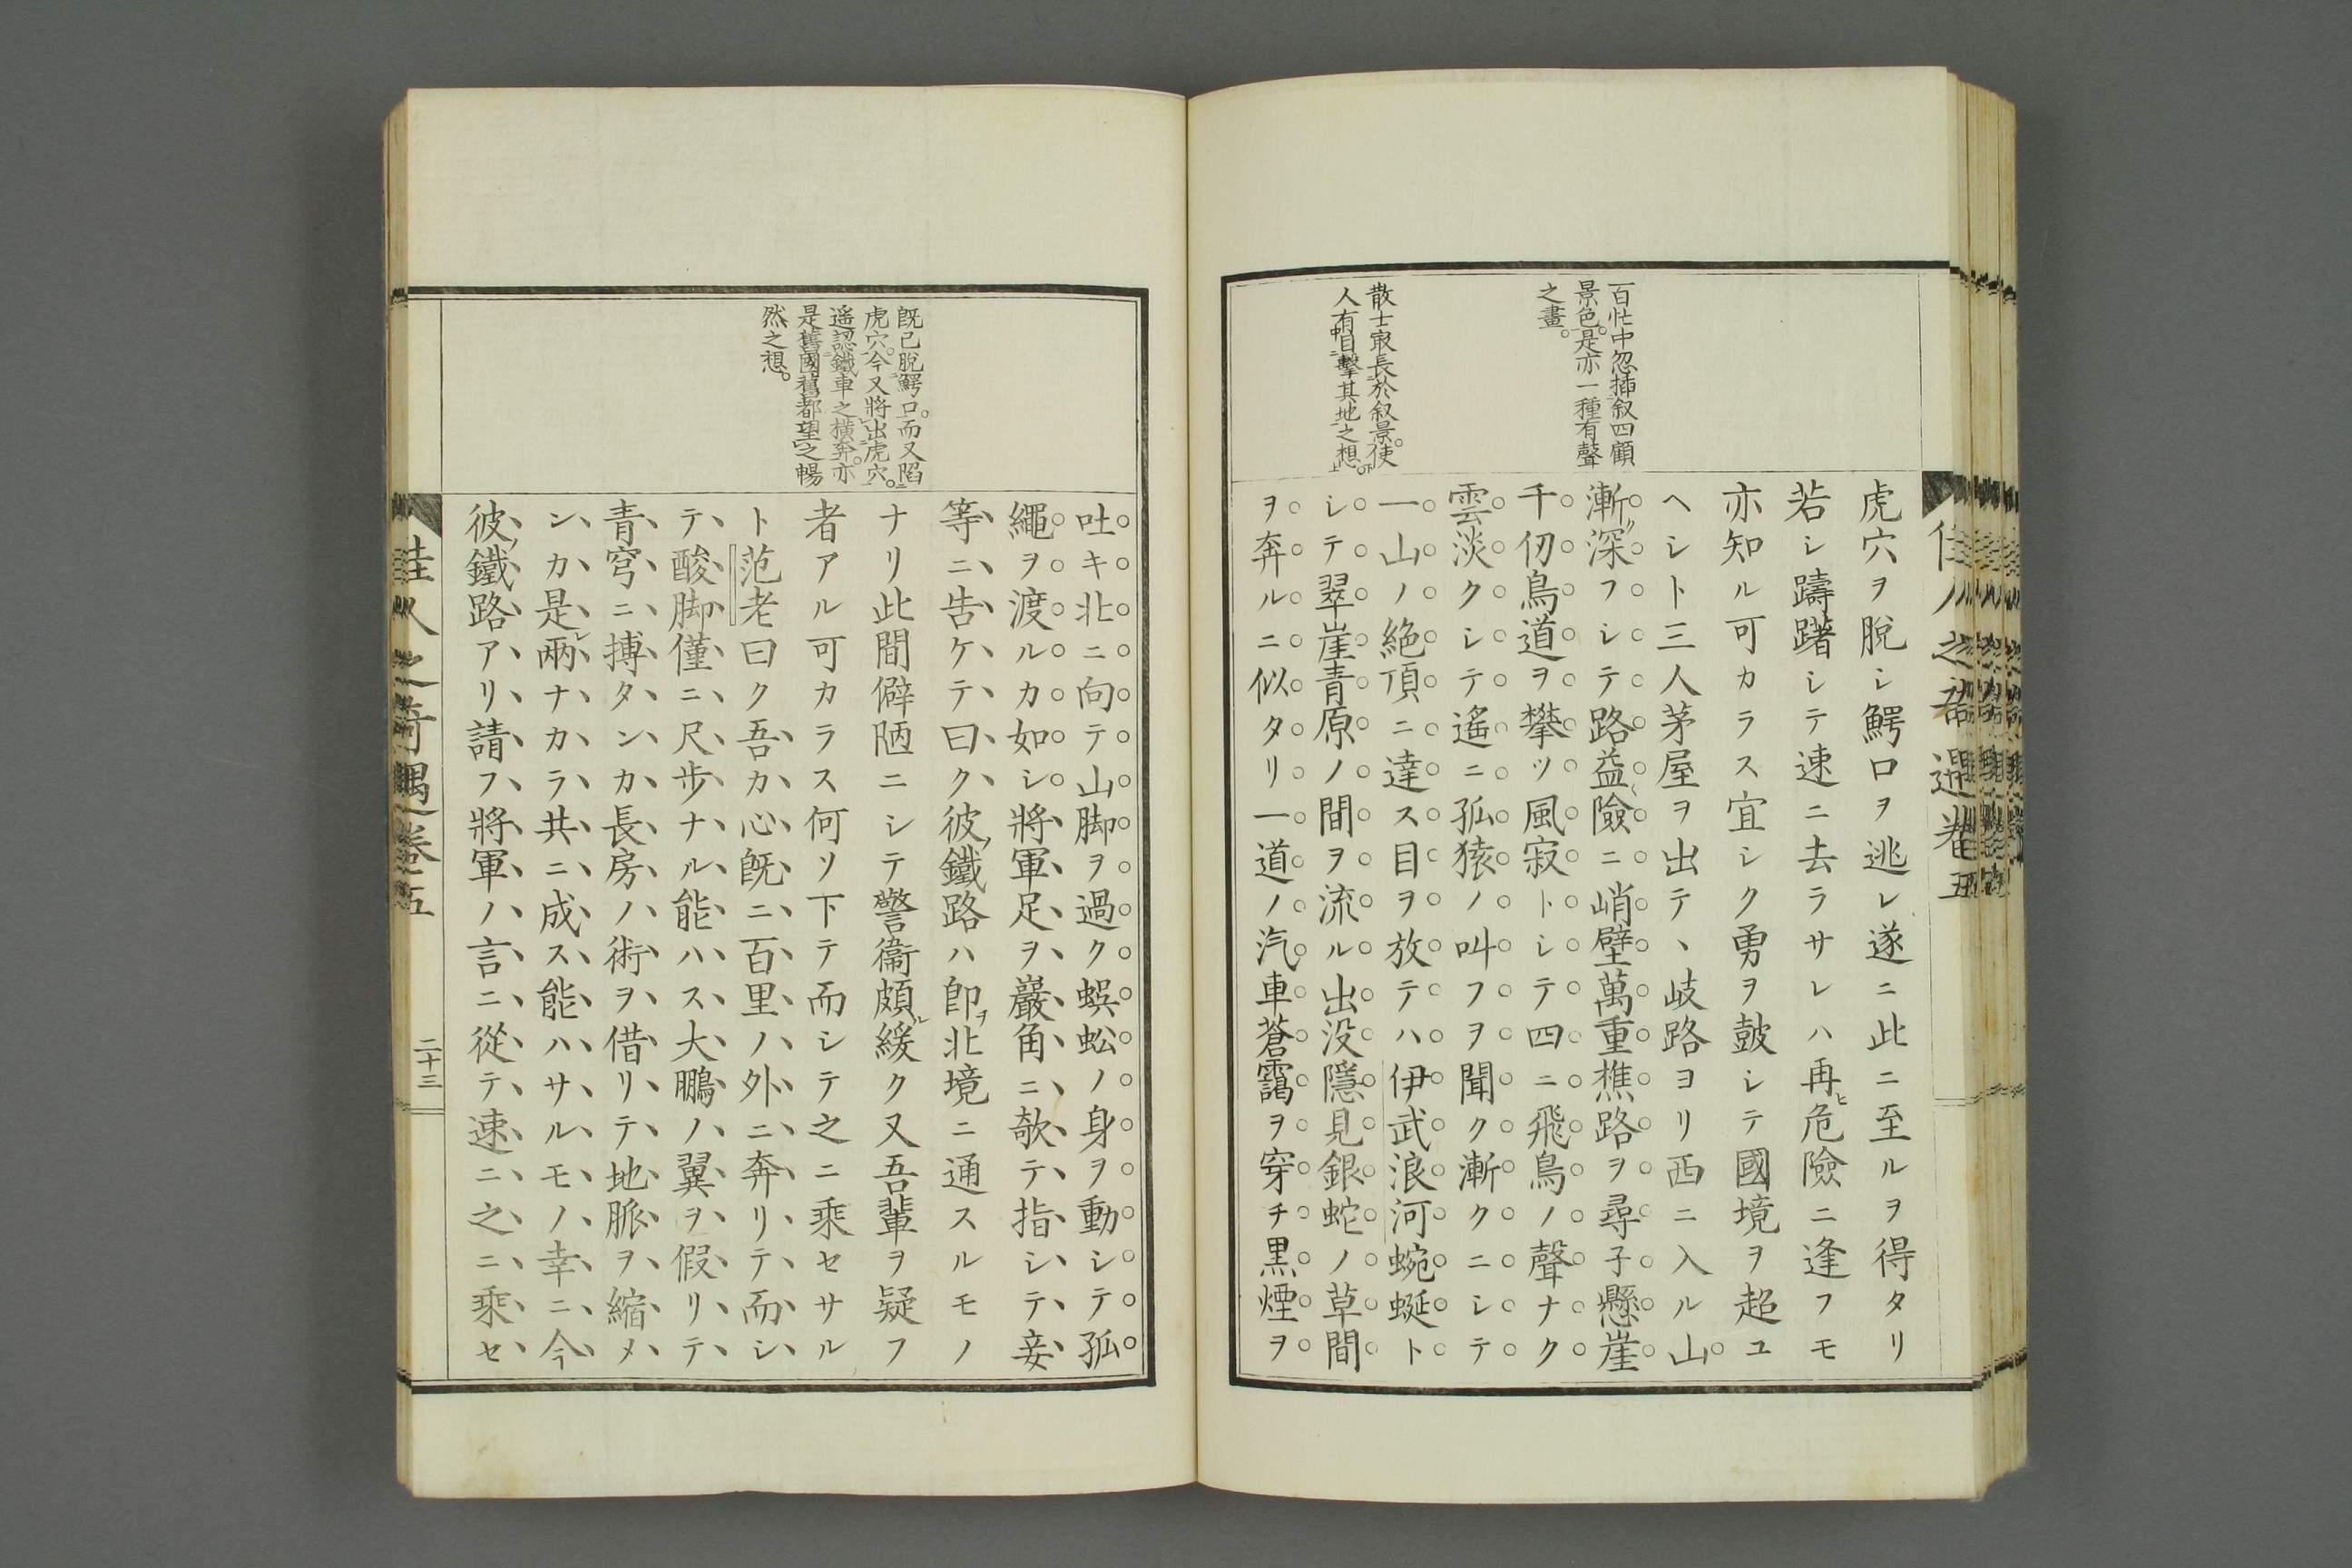 佳人之奇遇卷五
百忙中忽揷叙四顧
景色。是亦一種有聲
之畫。
散士㝡長於叙景。使
人有目擊其地之想。
虎穴ヲ脫シ鰐口ヲ逃レ遂ニ此ニ至ルヲ得タリ
若シ躊躇シテ速ニ去ラサレハ再ヒ危險ニ逢フモ
亦知ル可カラス宜シク勇ヲ鼓シテ國境ヲ超ユ
ヘシト三人茅屋ヲ出テヽ岐路ヨリ西ニ入ル山
漸ク深フシテ路益險ニ峭壁萬重樵路ヲ尋子懸崖
千仞鳥道ヲ攀ツ風寂トシテ四ニ飛鳥ノ聲ナク
雲淡クシテ遙ニ孤猿ノ叫フヲ聞ク漸クニシテ
一山ノ絶頂ニ達ス目ヲ放テハ伊武浪河蜿蜒ト
シテ翠崖青原ノ間ヲ流ル出没隱見銀蛇ノ草間
ヲ奔ルニ似タリ一道ノ汽車蒼靄ヲ穿チ黒煙ヲ
旣已脫鰐口。而又陷
虎穴。今又將出虎穴。
遙認鐵車之橫奔。亦
是舊國舊都望之暢
然之想。
吐キ北ニ向テ山脚ヲ過ク蜈蚣ノ身ヲ動シテ孤
繩ヲ渡ルカ如シ將軍足ヲ巖角ニ欹テ指シテ妾
等ニ告ケテ曰ク彼ノ鐵路ハ卽ヲ北境ニ通スルモノ
ナリ此間僻陋ニシテ警衞頗ル緩ク又吾輩ヲ疑フ
者アル可カラス何ソ下テ而シテ之ニ乘セサル
ト范老曰ク吾カ心旣ニ百里ノ外ニ奔リテ而シ
テ酸脚僅ニ尺歩ナル能ハス大鵬ノ翼ヲ假リテ
青穹ニ搏タンカ長房ノ術ヲ借リテ地脈ヲ縮メ
ンカ是レ兩ナカラ共ニ成ス能ハサルモノ幸ニ今
彼ノ鐵路アリ請フ將軍ノ言ニ從テ速ニ之ニ乘セ
佳人之奇遇卷五
二十三